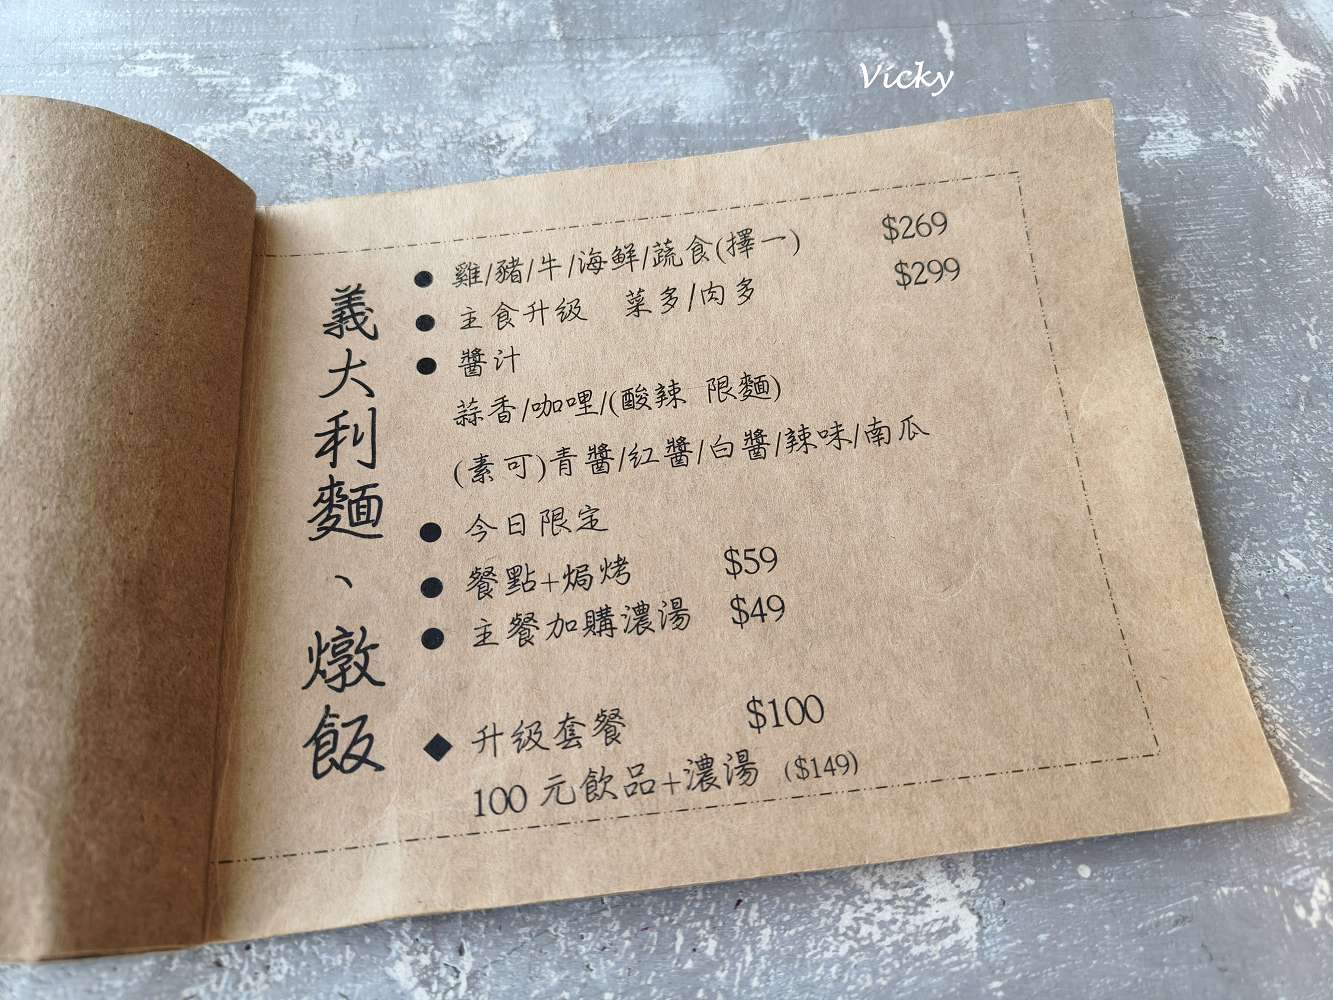 Vicky
義大利麵、燉飯
● 雞/豬/牛/海鮮/蔬食(擇一) $269
● 主食升级 菜多/肉多 $299
● 醬汁
蒜香/咖哩/(酸辣 限麵)
(素可)青醬/红醬/白醬/辣味/南瓜
● 今日限定
● 餐點+焗烤 $59
● 主餐加購濃湯 $49
◆ 升级套餐 $100
100 元飲品+濃湯 ($149)